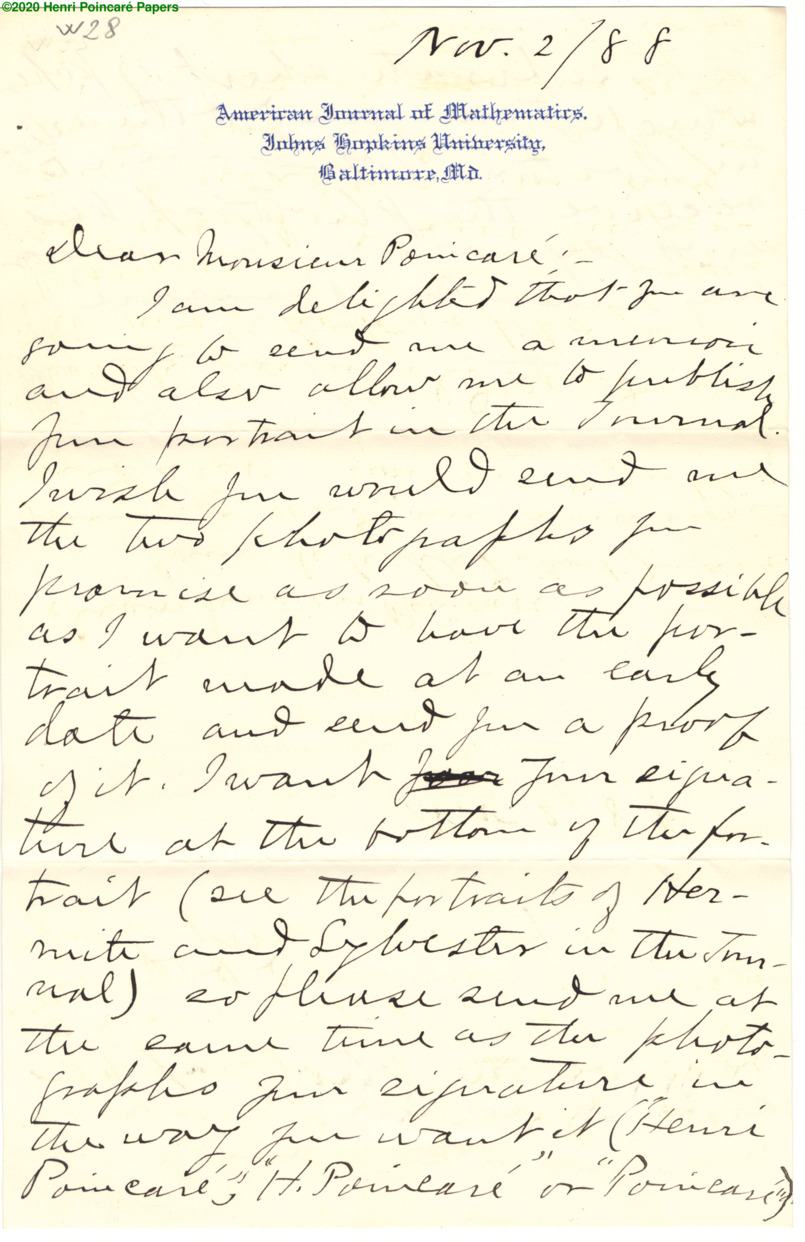 ©2020 Henri Poincaré Papers
W28
Nov. 2/88
American Journal of Mathematics.
Johns Hopkins University,
Baltimore, Md.
Dear Monsieur Poincaré:–
I am delighted that you are
going to send me a memoir
and also allow me to publish
your portrait in the Journal.
I wish you would send me
the two photographs you
promise as soon as possible
as I want to have the por-
trait made at an early
date and send you a proof
of it. I want your signa-
ture at the bottom of the por-
trait (see the portraits of Her-
mite and Sylvester in the Jour-
nal) so please send me at
the same time as the photo-
graphs your signature in
the way you want it ("Henri
Poincaré", "H. Poincaré" or "Poincaré")